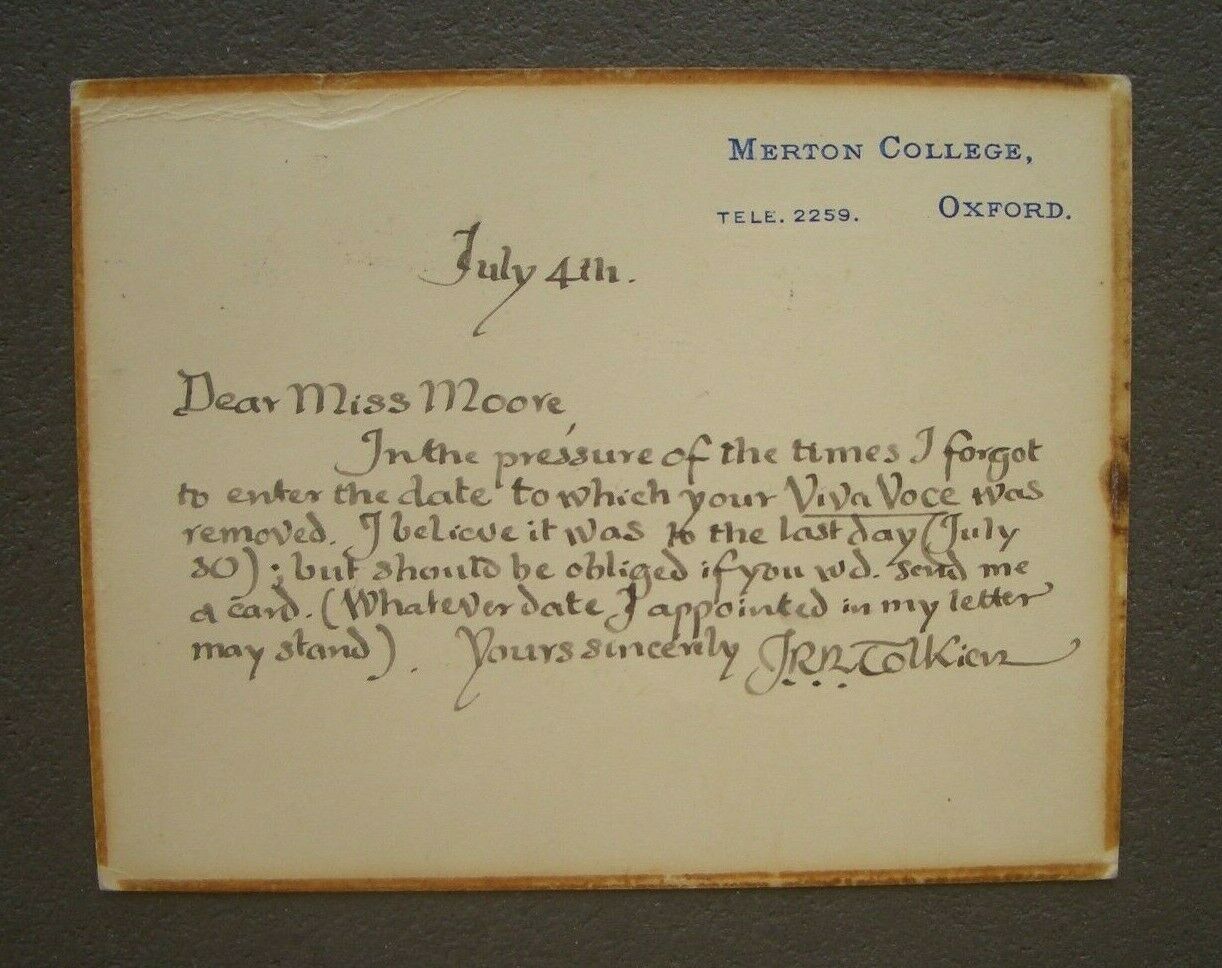 MERTON COLLEGE,
TELE. 2259. OXFORD.
July 4th.
Dear Miss Moore,
In the pressure of the times I forgot
to enter the date to which your Viva Voce was
removed. I believe it was to the last day (July
30); but should be obliged if you wd. send me
a card. (Whatever date I appointed in my letter
may stand). Yours sincerely J.R.R. Tolkien